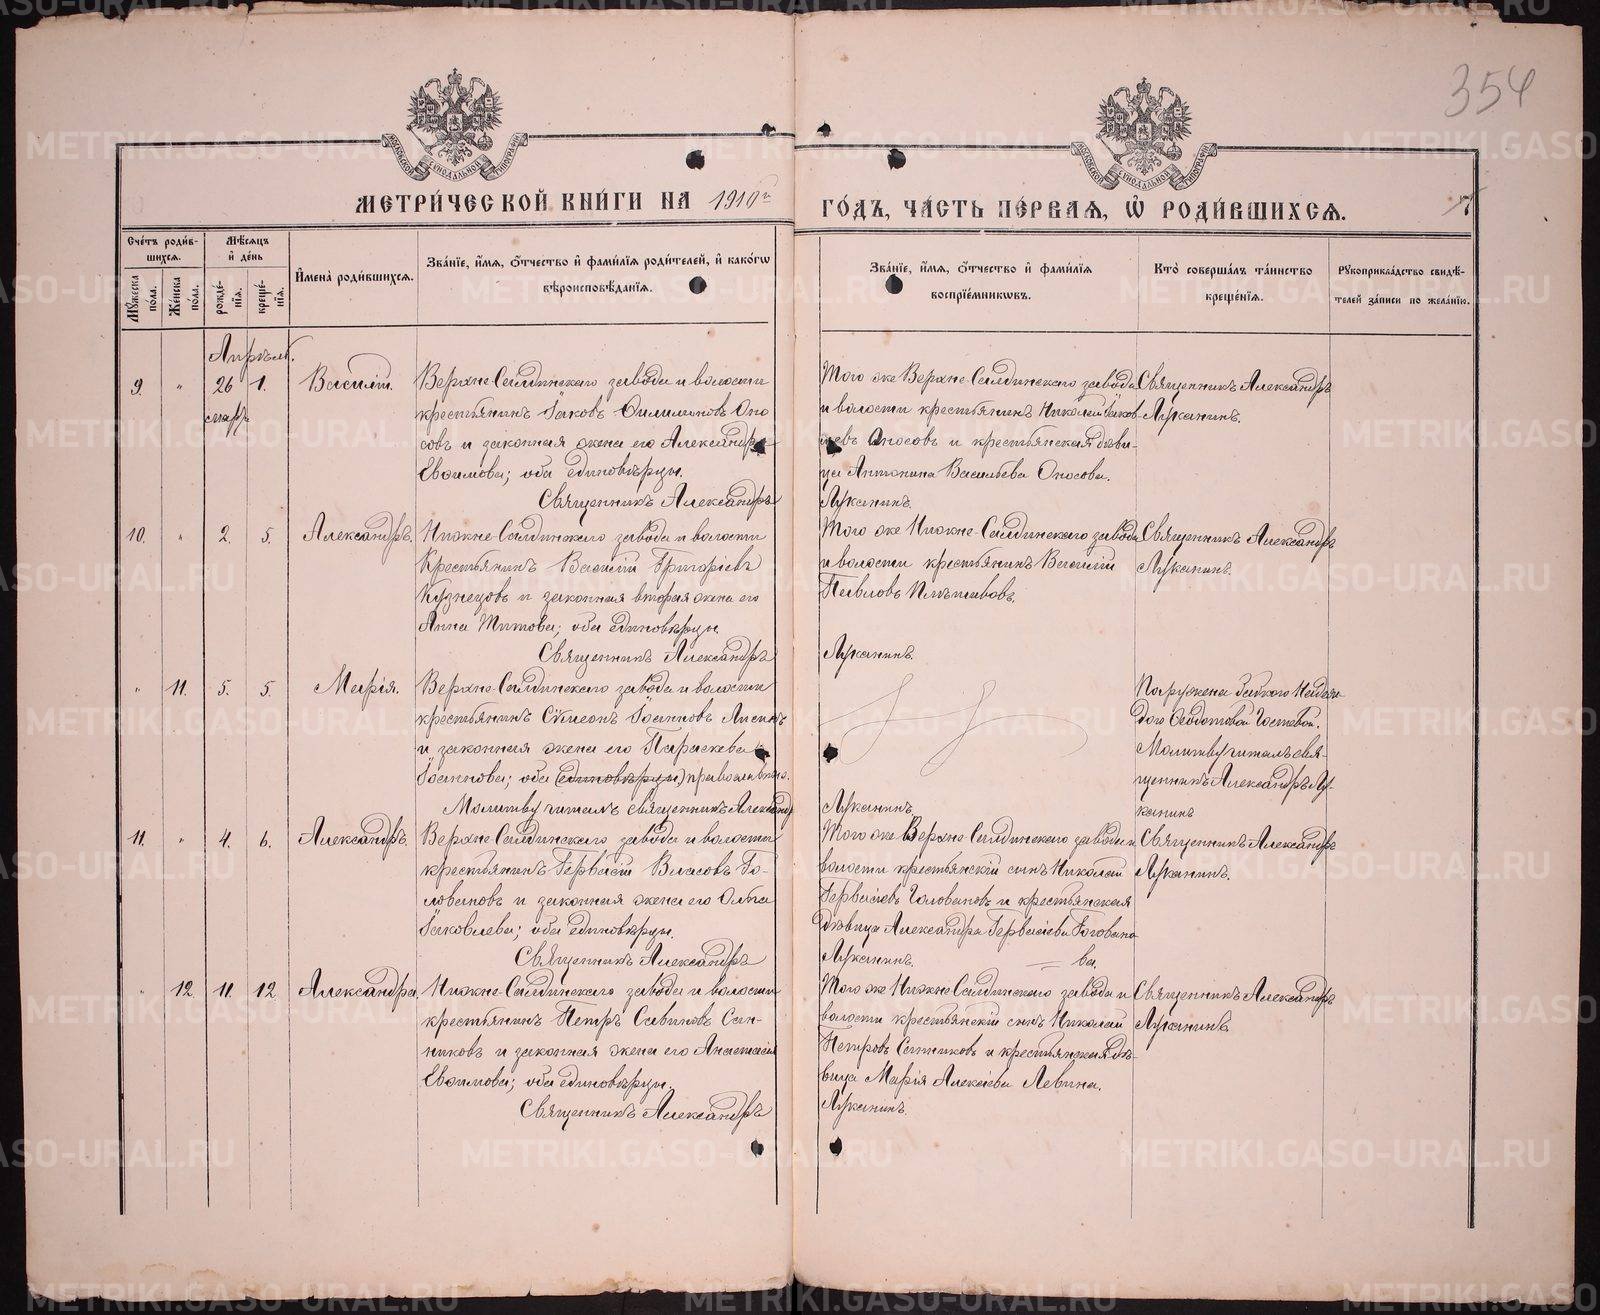 354
МОСКОВСКОЙ СѴНОДАЛЬНОЙ ТИПОГРАФІИ
МОСКОВСКОЙ СѴНОДАЛЬНОЙ ТИПОГРАФІИ
МЕТРИ́ЧЕСКОЙ КНИ́ГИ НА 1910й ГО́ДЪ, ЧА́СТЬ ПЕ́РВАЯ, Ѿ РОДИ́ВШИХСЯ.
Сче́тъ роди́в-
шихся.
Му́жеска по́ла.
Же́нска по́ла.
Мѣ́сяцъ и҆ де́нь
рожде́-нїя.
креще́-нїя.
И҆мена̀ роди́вшихся.
Зва́нїе, и҆́мя, о҆́тчество и҆ фами́лїя роди́телей, и҆ како́гѡ
вѣроисповѣ́данїя.
Зва́нїе, и҆́мя, о҆́тчество и҆ фами́лїя
воспрїе́мниковъ.
Кто̀ соверша́лъ та́инство
креще́нїя.
Рꙋкоприкла́дство свидѣ́-
телей за́писи по жела́нїю.
Апрѣль.
9. " 26 1. Василій.
мар.
Верхне-Салдинскаго завода и волости
крестьянинъ Іаковъ Филимоновъ Оно-
совъ и законная жена его Александра
Евфимова; оба единовѣрцы.
Священникъ Александръ
Того же Верхне-Салдинскаго завода
и волости крестьянинъ Николай Іаков-
левъ Оносовъ и крестьянская дѣви-
ца Антонина Васильева Оносова.
Луканинъ.
Священникъ Александръ
Луканинъ.
10. " 2. 5. Александръ.
Нижне-Салдинскаго завода и волости
крестьянинъ Василій Григоріевъ
Кузнецовъ и законная вторая жена его
Анна Титова; оба единовѣрцы.
Священникъ Александръ
Того же Нижне-Салдинскаго завода
и волости крестьянинъ Василій
Павловъ
Луканинъ.
Священникъ Александръ
Луканинъ.
" 11. 5. 5. Марія.
Верхне-Салдинскаго завода и волости
крестьянинъ Сѵмеонъ Іоанновъ
и законная жена его Параскева
Іоаннова; оба (единовѣрцы) православ.
Молитву читалъ священникъ Александръ
Луканинъ.
Погружена бабкою
Ѳедотовой
Молитву читалъ свя-
щенникъ Александръ Лу-
канинъ
11. " 4. 6. Александръ.
Верхне-Салдинскаго завода и волости
крестьянинъ Гервасій Власовъ Го-
ловановъ и законная жена его Ольга
Іаковлева; оба единовѣрцы.
Священникъ Александръ
Того же Верхне-Салдинскаго завода и
волости крестьянскій сынъ Николай
Гервасіевъ Головановъ и крестьянская
дѣвица Александра Гервасіева Голована
Луканинъ. = ва.
Священникъ Александръ
Луканинъ.
" 12. 11. 12. Александра.
Нижне-Салдинскаго завода и волости
крестьянинъ Петръ Савиновъ Сан-
никовъ и законная жена его Анастасія
Евфимова; оба единовѣрцы.
Священникъ Александръ
Того же Нижне-Салдинскаго завода и
волости крестьянскій сынъ Николай
Петровъ Санниковъ и крестьянская дѣ-
вица Марія Алексіева Левина.
Луканинъ.
Священникъ Александръ
Луканинъ
METRIKI.GASO-URAL.RU